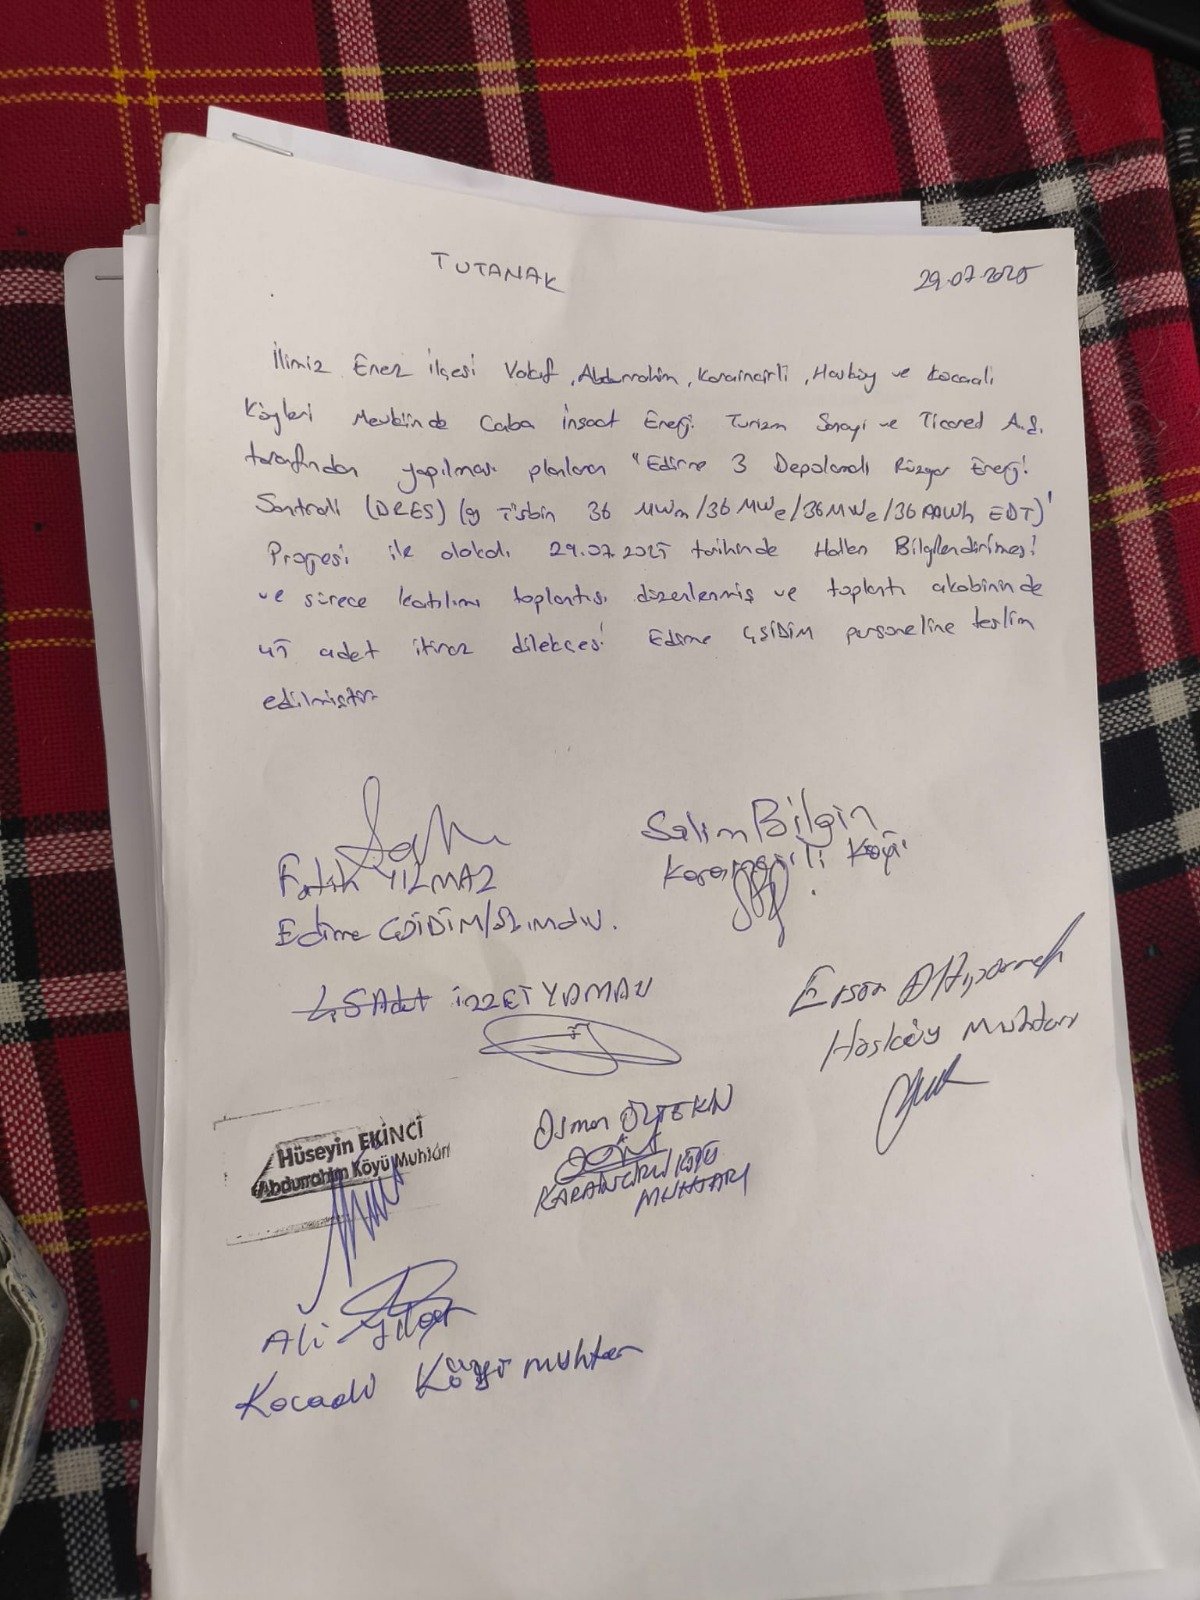 TUTANAK
29.07.2025
İlimiz Enez ilçesi Vakıf, Abdurrahim, Karaincirli, Hasköy ve Kocaali
Köyleri Mevkiinde Caba İnşaat Enerji Turizm Sanayi ve Ticaret A.Ş.
tarafından yapılması planlanan "Edirne 3 Depolamalı Rüzgar Enerji
Santrali (DRES) 36 MWm/36 MWe/36 MWe/36 MWh EDT)"
Projesi ile alakalı 29.07.2025 tarihinde Halkın Bilgilendirilmesi
ve sürece katılımı toplantısı düzenlenmiş ve toplantı akabininde
45 adet itiraz dilekçesi Edirne ÇŞİDİM personeline teslim
edilmiştir.
Fatih YILMAZ
Edirne ÇŞİDİM/
Selim Bilgin
Karaincirli Köyü
45 Adet İZZET YAMAN
Ersan Altıparmak
Hasköy Muhtarı
Hüseyin EKİNCİ
Abdurrahim Köyü Muhtarı
Osman ÖZTEKİN
KARAİNCİRLİ KÖYÜ
MUHTARI
Ali
Kocaali Köyü muhtarı